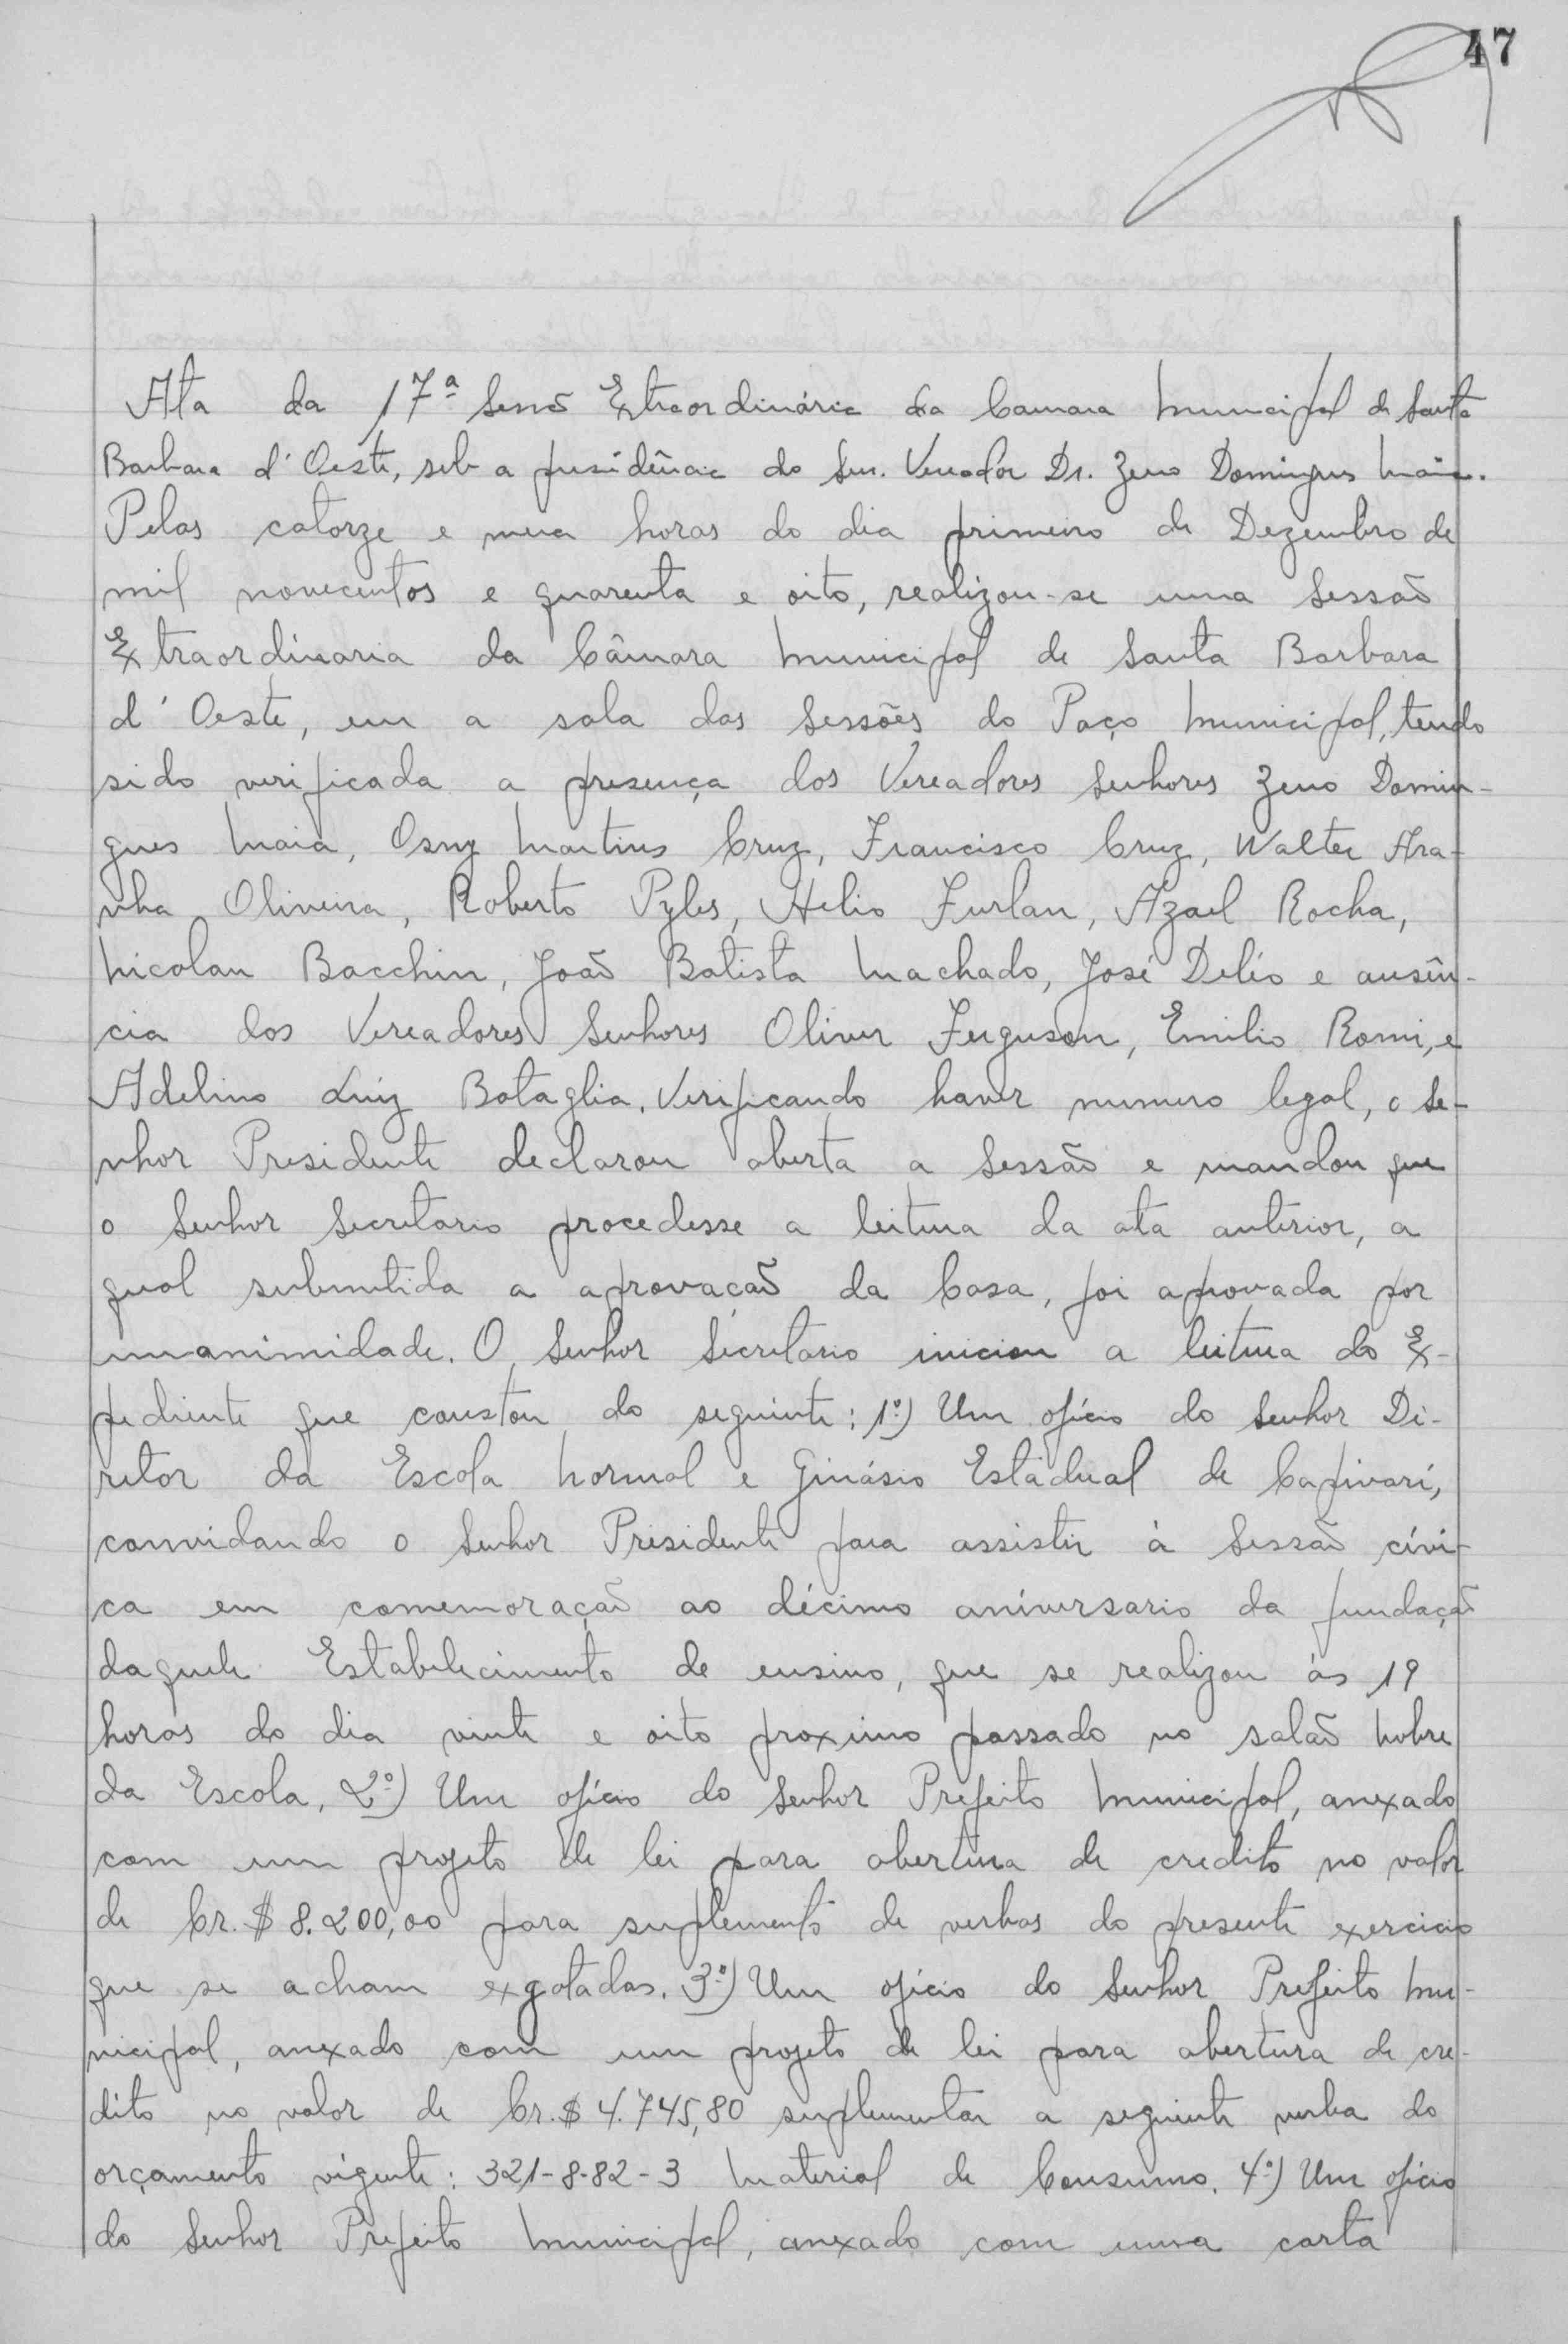 47
Ata da 17ª Sessão Extraordinária da Camara Municipal de Santa
Barbara d'Oeste, sob a presidência do Snr. Vereador Dr. Zeno Domingues Maia.
Pelas catorze e meia horas do dia primeiro de Dezembro de
mil novecentos e quarenta e oito, realizou-se uma Sessão
Extraordinaria da Câmara Municipal de Santa Barbara
d'Oeste, em a sala das Sessões do Paço Municipal, tendo
sido verificada a presença dos Vereadores Senhores Zeno Domin-
gues Maia, Osny Martins Cruz, Francisco Cruz, Walter Ara-
nha Oliveira, Roberto Pyles, Helio Furlan, Azael Rocha,
Nicolau Bacchin, João Batista Machado, José Delio e ausên-
cia dos Vereadores Senhores Oliver Ferguson, Emilio Romi, e
Adelino Luiz Bataglia. Verificando haver numero legal, o Se-
nhor Presidente declarou aberta a Sessão e mandou que
o Senhor Secretario procedesse a leitura da ata anterior, a
qual submetida a aprovação da Casa, foi aprovada por
unanimidade. O Senhor Secretario iniciou a leitura do Ex-
pediente que constou do seguinte: 1º) Um ofício do Senhor Di-
retor da Escola Normal e Ginásio Estadual de Capivarí,
convidando o Senhor Presidente para assistir à Sessão cívi-
ca em comemoração ao décimo aniversario da fundação
daquele Estabelecimento de ensino, que se realizou às 19
horas do dia vinte e oito proximo passado no salão Nobre
da Escola, 2º) Um ofício do Senhor Prefeito Municipal, anexado
com um projeto de lei para abertura de credito no valor
de Cr.$ 8.200,00 para suplemento de verbas do presente exercicio
que se acham exgotadas. 3º) Um ofício do Senhor Prefeito Mu-
nicipal, anexado com um projeto de lei para abertura de cre-
dito no valor de Cr.$ 4.745,80 suplementar a seguinte verba do
orçamento vigente: 321-8-82-3 Material de Consumo. 4º) Um ofício
do Senhor Prefeito Municipal, anexado com uma carta